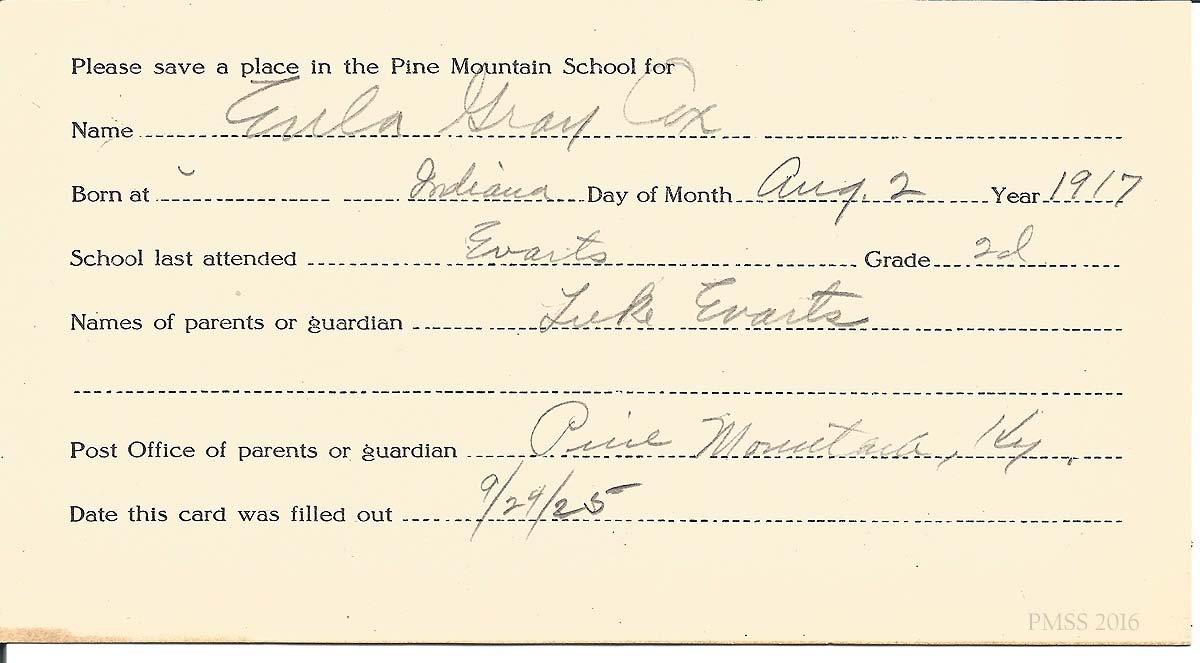 Please save a place in the Pine Mountain School for
Name Eula Gray Cox
Born at Indiana Day of Month Aug. 2 Year 1917
School last attended Evarts Grade 2d
Names of parents or guardian Luke Evarts
Post Office of parents or guardian Pine Mountain, Ky.
Date this card was filled out 9/29/25
PMSS 2016